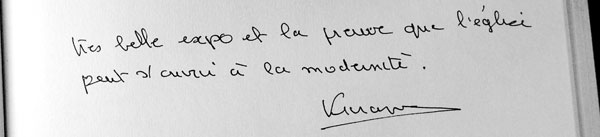 très belle expo et la preuve que l'église
peut s'ouvrir à la modernité.